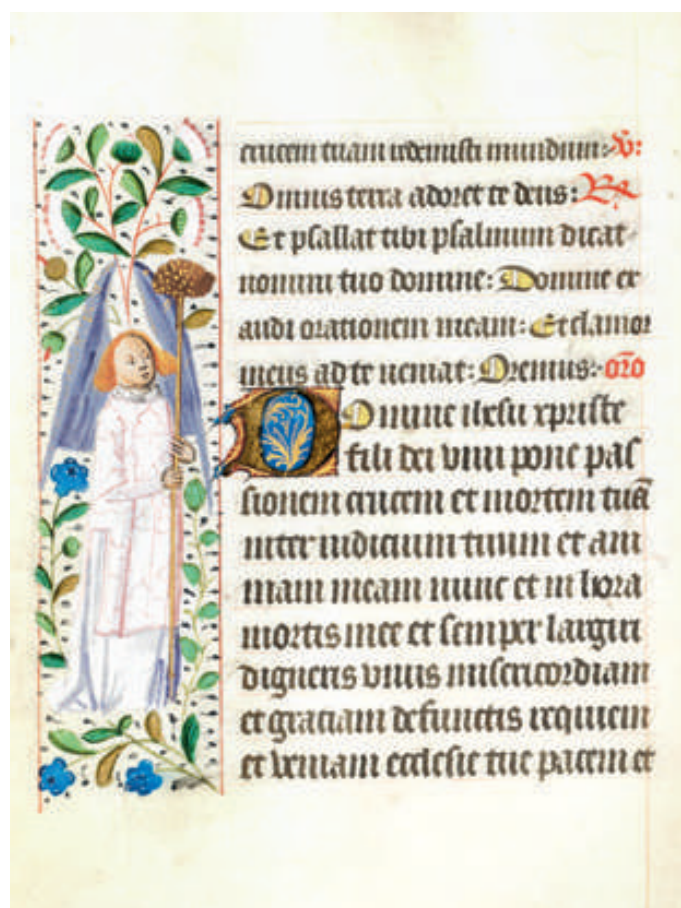 crucem tuam redemisti mundum: V̄:
Omnis terra adoret te deus: R
Et psallat tibi psalmum dicat
nomini tuo domine: Domine ex
audi orationem meam: Et clamor
meus ad te veniat: Oremus: oro̅
Domine ihesu xpriste
fili dei vivi pone pas
sionem crucem et mortem tuā
inter iudicium tuum et ani
mam meam nunc et in hora
mortis mee et semper largiri
digneris vivis misericordiam
et graciam defunctis requiem
et veniam ecclesie tue pacem et